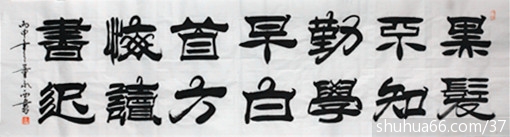 黑髮
不知
勤學
早白
首方
悔讀
書遲
丙申年
shuhua66.com/37